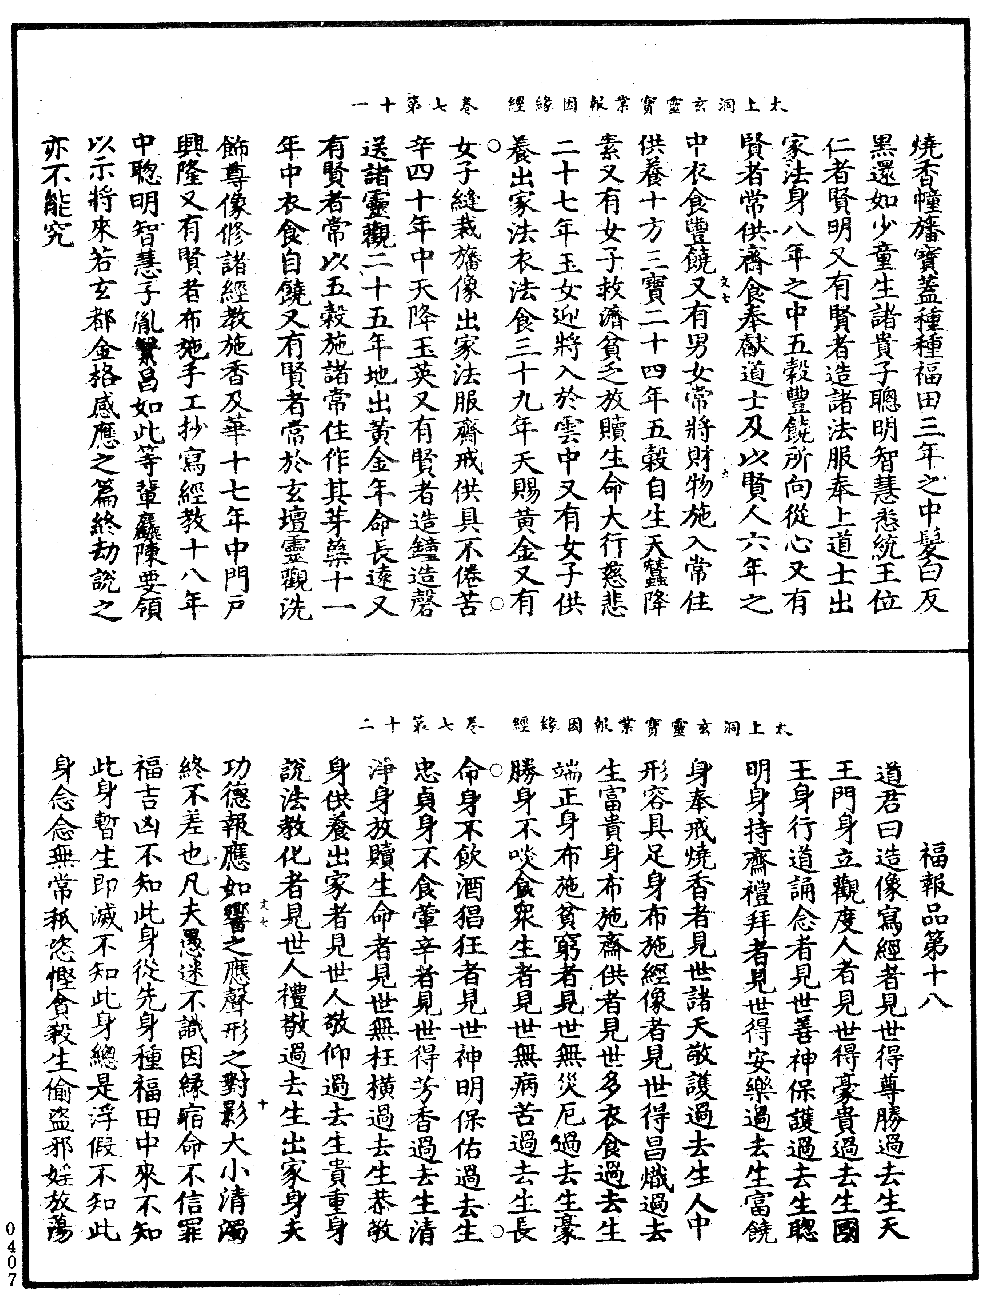 太上洞玄靈寶業報因緣經　卷七第十一
燒香幢旛寶蓋種種福田三年之中髮白反
黑還如少童生諸貴子聰明智慧悉統王位
仁者賢明又有賢者造諸法服奉上道士出
家法身八年之中五穀豐饒所向從心又有
賢者常供齋食奉獻道士及以賢人六年之
中衣食豐饒又有男女常將財物施入常住
供養十方三寶二十四年五穀自生天蠶降
素又有女子救濟貧乏放贖生命大行慈悲
二十七年玉女迎將入於雲中又有女子供
養出家法衣法食三十九年天賜黃金又有
女子縫裁旛像出家法服齋戒供具不倦苦
辛四十年中天降玉英又有賢者造鐘造磬
送諸靈觀二十五年地出黃金年命長遠又
有賢者常以五穀施諸常住作其芽蘖十一
年中衣食自饒又有賢者常於玄壇靈觀洗
飾尊像修諸經教施香及華十七年中門戶
興隆又有賢者布施手工抄寫經教十八年
中聰明智慧子胤繁昌如此等輩麤陳要領
以示將來若玄都金格感應之篇終劫說之
亦不能究
太上洞玄靈寶業報因緣經　卷七第十二
福報品第十八
道君曰造像寫經者見世得尊勝過去生天
王門身立觀度人者見世得豪貴過去生國
王身行道誦念者見世善神保護過去生聰
明身持齋禮拜者見世得安樂過去生富饒
身奉戒燒香者見世諸天敬護過去生人中
形容具足身布施經像者見世得昌熾過去
生富貴身布施齋供者見世多衣食過去生
端正身布施貧窮者見世無災厄過去生豪
勝身不啖食眾生者見世無病苦過去生長
命身不飲酒猖狂者見世神明保佑過去生
忠貞身不食葷辛者見世得芳香過去生清
淨身放贖生命者見世無枉橫過去生恭敬
身供養出家者見世人敬仰過去生貴重身
說法教化者見世人禮敬過去生出家身夫
功德報應如響之應聲形之對影大小清濁
終不差也凡夫愚迷不識因緣宿命不信罪
福吉凶不知此身從先身種福田中來不知
此身暫生即滅不知此身總是浮假不知此
身念念無常執恣慳貪殺生偷盜邪婬放蕩
文七
十
0407